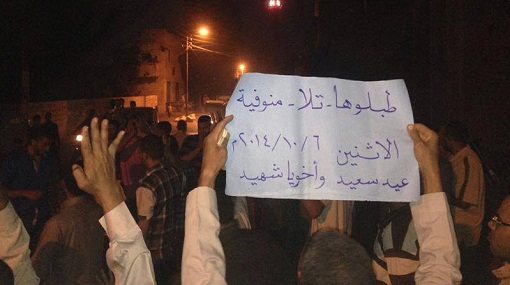 طبلوها - تلا - منوفية
الاثنين ٢٠١٤/١٠/٦م
عيد سعيد وأخويا شهيد